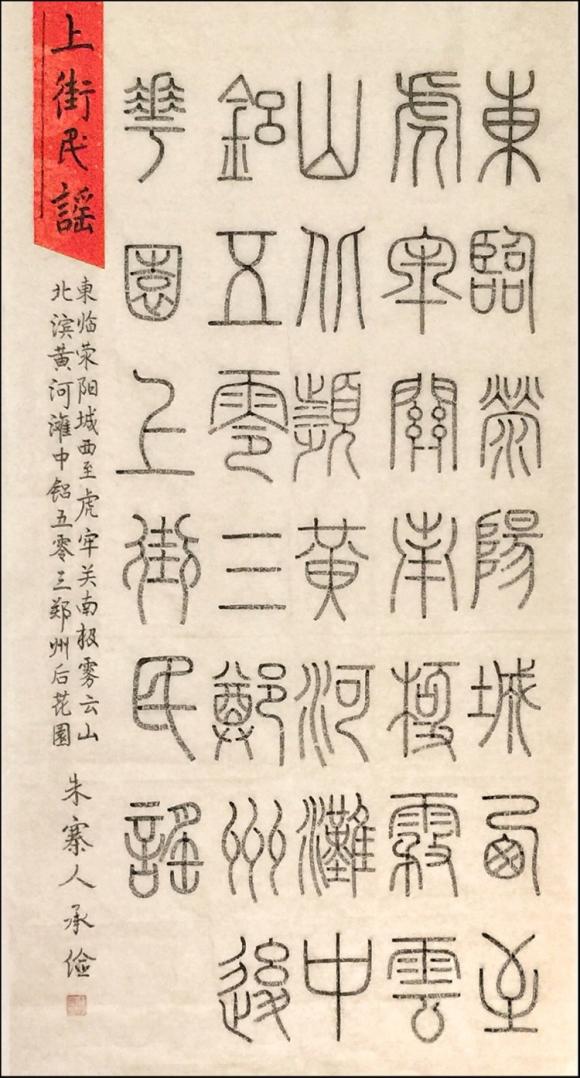 東臨滎陽城西至
虎牢關南極霧雲
山北瀕黃河灘中
鋁五零三鄭州後
華園上街民謠
上街民謠
東临荥阳城西至虎牢关南极雾云山
北滨黄河灘中铝五零三郑州后花園
朱寨人承俭